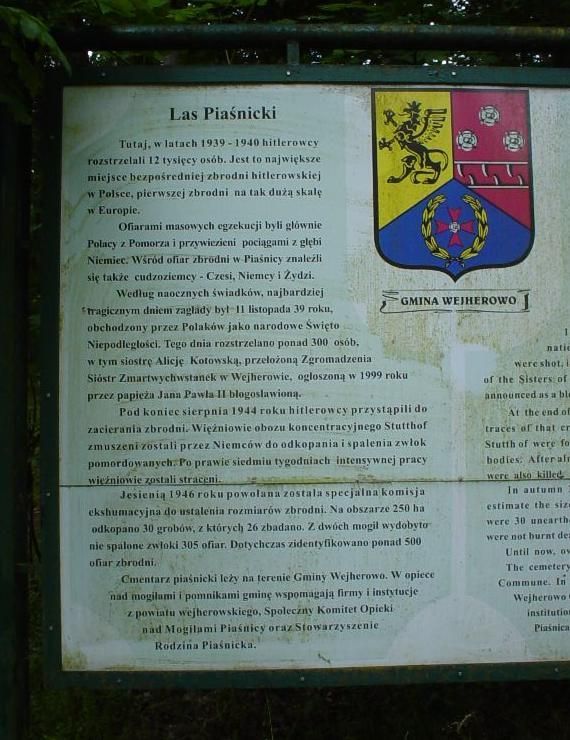 Las Piaśnicki
Tutaj, w latach 1939 - 1940 hitlerowcy
rozstrzelali 12 tysięcy osób. Jest to największe
miejsce bezpośredniej zbrodni hitlerowskiej
w Polsce, pierwszej zbrodni na tak dużą skalę
w Europie.
Ofiarami masowych egzekucji byli głównie
Polacy z Pomorza i przywiezieni pociągami z głębi
Niemiec. Wśród ofiar zbrodni w Piaśnicy znaleźli
się także cudzoziemcy - Czesi, Niemcy i Żydzi.
Według naocznych świadków, najbardziej
tragicznym dniem zagłady był 11 listopada 39 roku,
obchodzony przez Polaków jako narodowe Święto
Niepodległości. Tego dnia rozstrzelano ponad 300 osób,
w tym siostrę Alicję Kotowską, przełożoną Zgromadzenia
Sióstr Zmartwychwstanek w Wejherowie, ogłoszoną w 1999 roku
przez papieża Jana Pawła II błogosławioną.
Pod koniec sierpnia 1944 roku hitlerowcy przystąpili do
zacierania zbrodni. Więźniowie obozu koncentracyjnego Stutthof
zmuszeni zostali przez Niemców do odkopania i spalenia zwłok
pomordowanych. Po prawie siedmiu tygodniach intensywnej pracy
więźniowie zostali straceni.
Jesienią 1946 roku powołana została specjalna komisja
ekshumacyjna do ustalenia rozmiarów zbrodni. Na obszarze 250 ha
odkopano 30 grobów, z których 26 zbadano. Z dwóch mogił wydobyto
nie spalone zwłoki 305 ofiar. Dotychczas zidentyfikowano ponad 500
ofiar zbrodni.
Cmentarz piaśnicki leży na terenie Gminy Wejherowo. W opiece
nad mogiłami i pomnikami gminę wspomagają firmy i instytucje
z powiatu wejherowskiego, Społeczny Komitet Opieki
nad Mogiłami Piaśnicy oraz Stowarzyszenie
Rodzina Piaśnicka.
GMINA WEJHEROWO
natie
were shot, i
of the Sisters of
announced as a ble
At the end of
traces of that cr
Stutth of were fo
bodies. After alm
were also killed.
In autumn
estimate the size
were 30 unearthe
were not burnt dea
Until now, ov
The cemetery
Commune. In
Wejherowo
institution
Piaśnica